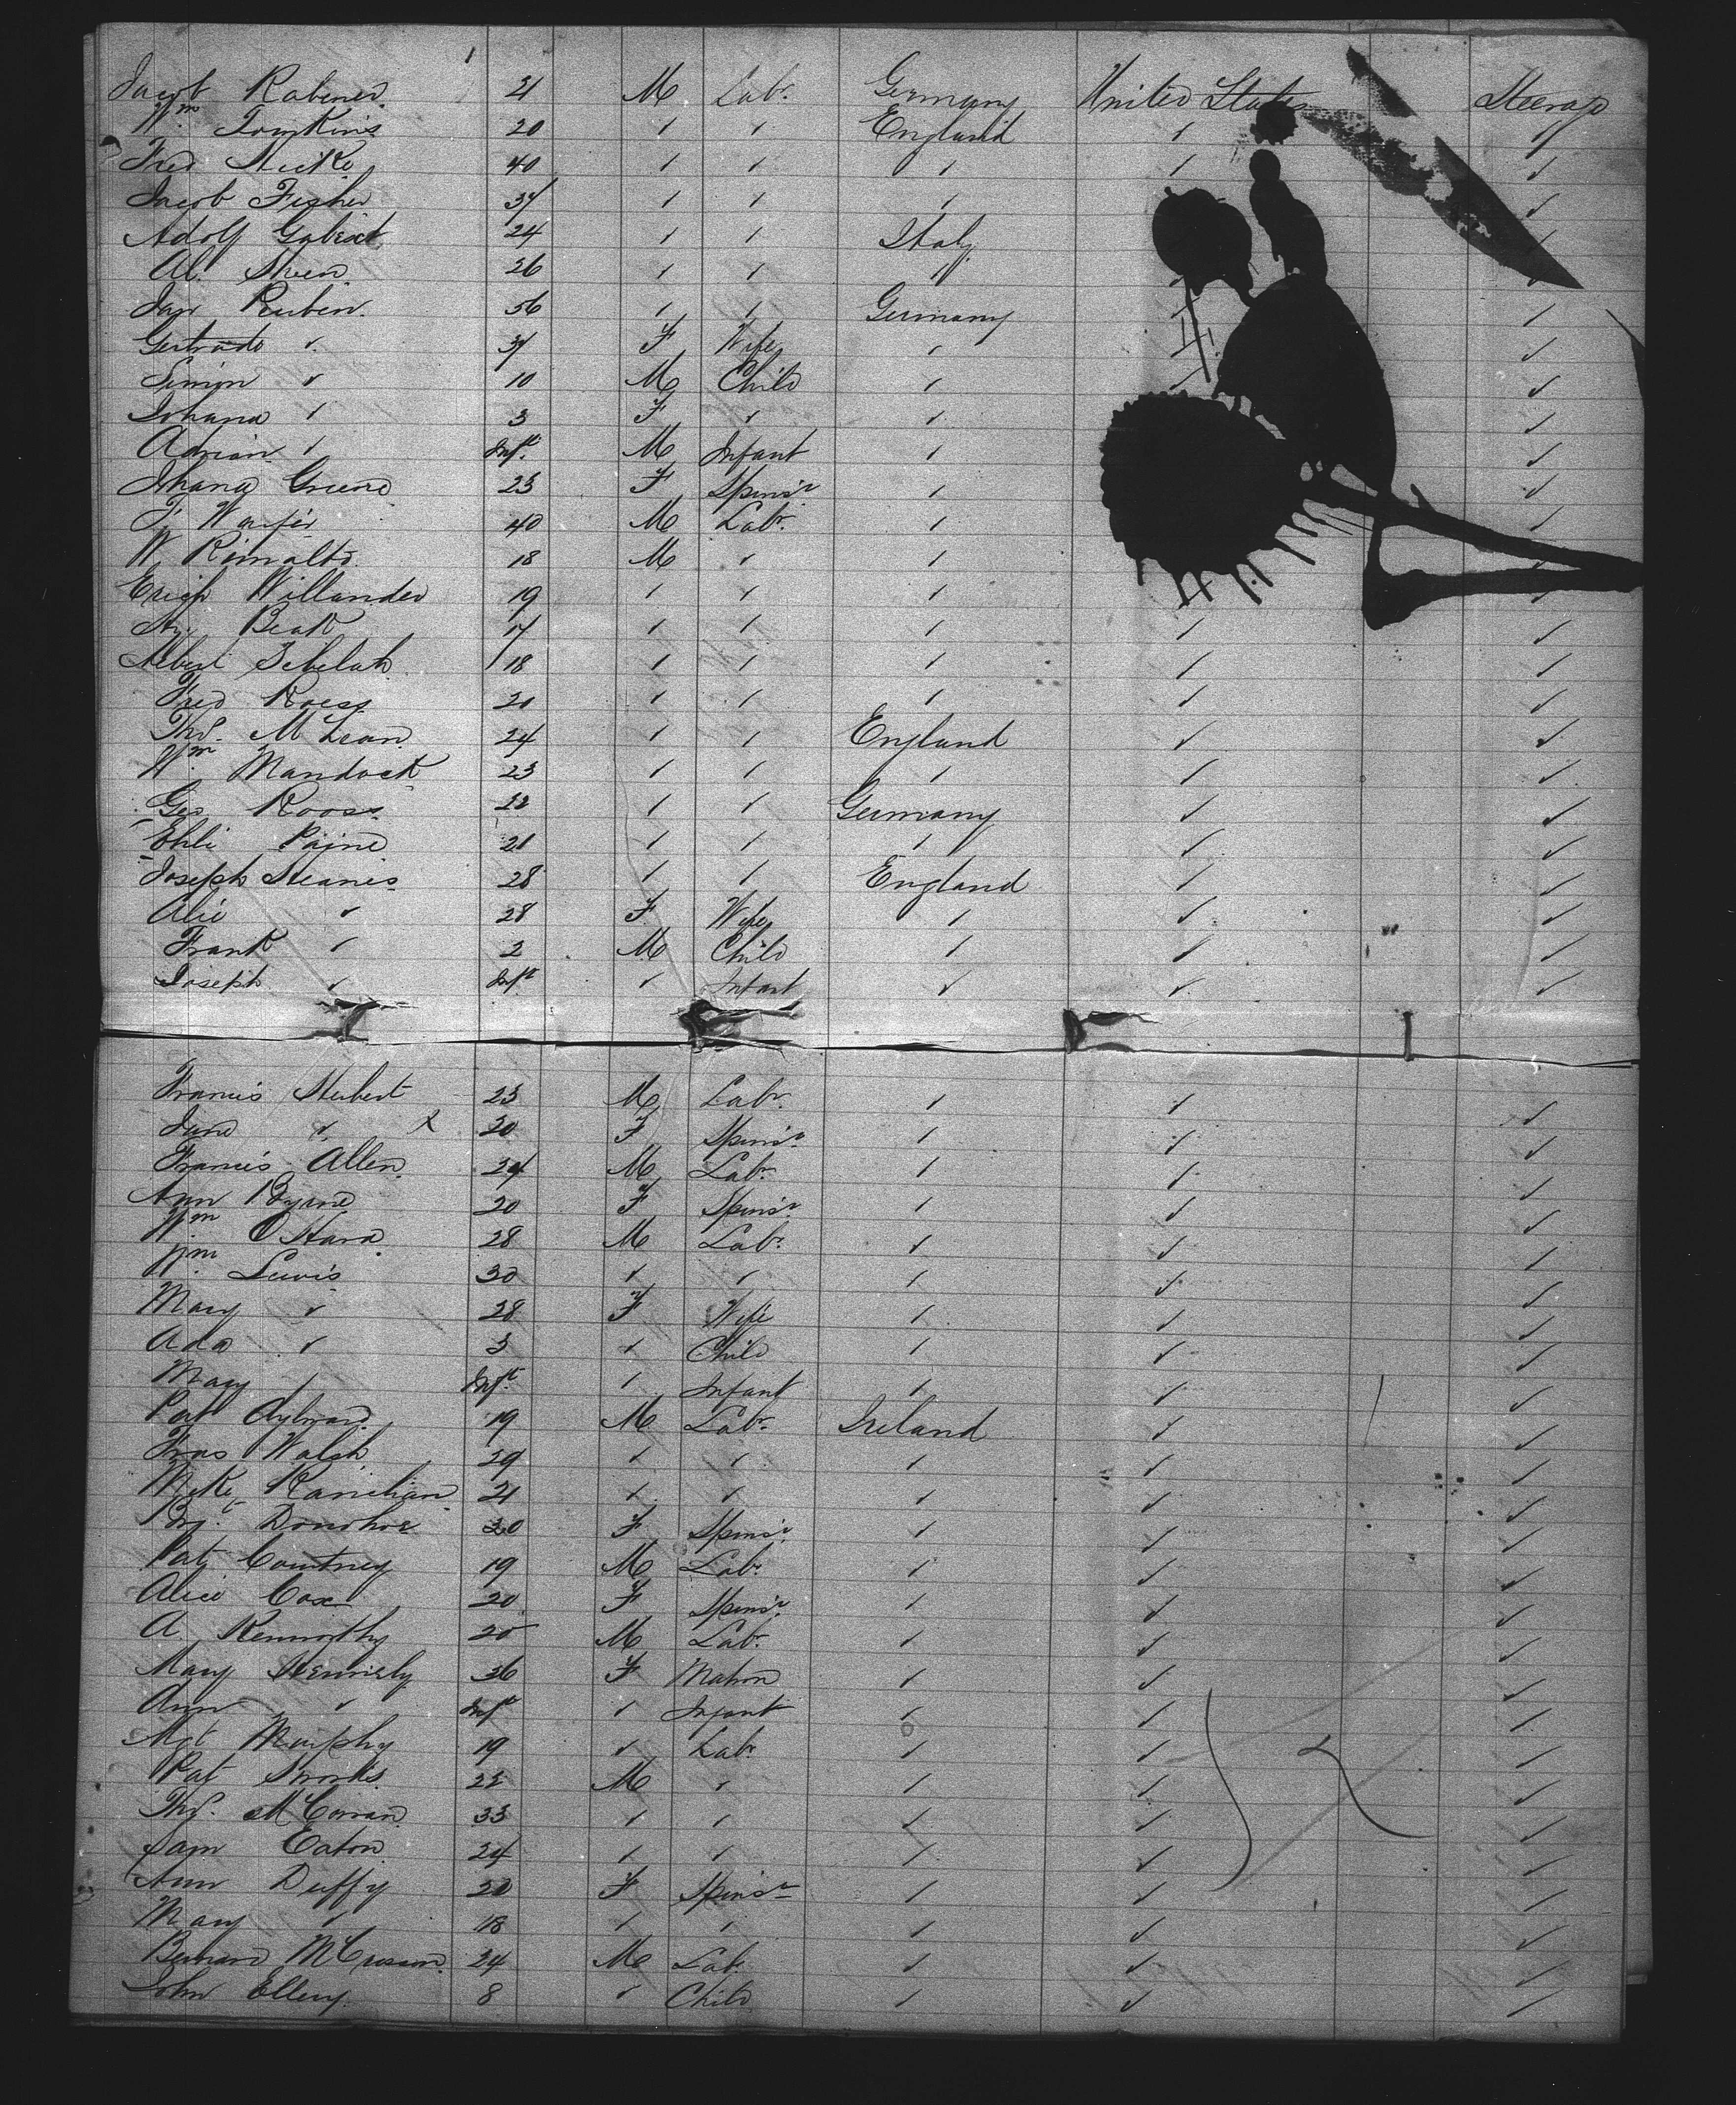 Jacob Rabiner 21 M Labr. Germany United States Steerage
Wm Tomkins 20 ✓ ✓ England ✓ ✓
Fred Sticke 40 ✓ ✓ ✓ ✓ ✓
Jacob Fisher 37 ✓ ✓ ✓ ✓
Adolf 24 ✓ ✓ Italy ✓
Al. Sheen 26 ✓ ✓ ✓ ✓ ✓
Jan Rubin 56 ✓ ✓ Germany ✓ ✓
Gertrude ✓ 37 F Wife ✓ ✓ ✓
Simon ✓ 10 M Child ✓ ✓ ✓
Johana ✓ 3 F ✓ ✓ ✓
Adrian ✓ Inft. M Infant ✓ ✓
Johana Greene 23 F Spinsr ✓ ✓
F. 40 M Labr. ✓ ✓
W Rimalto 18 M ✓ ✓ ✓
Erich Willander 19 ✓ ✓ ✓ ✓
Beak 17 ✓ ✓ ✓ ✓ ✓
Albert Zebelah 18 ✓ ✓ ✓ ✓ ✓
Fred Roess 20 ✓ ✓ ✓ ✓ ✓
Thos. McLean 24 ✓ ✓ England ✓ ✓
Wm Mandock 23 ✓ ✓ ✓ ✓ ✓
Geo Rooss 22 ✓ ✓ Germany ✓ ✓
Ehli Paine 21 ✓ ✓ ✓ ✓ ✓
Joseph Steanes 28 ✓ ✓ England ✓ ✓
Alie ✓ 28 F Wife ✓ ✓ ✓
Frank ✓ 2 M Child ✓ ✓ ✓
Joseph ✓ Inft ✓ Infant ✓ ✓ ✓
Francis Herbert 23 M Labr. ✓ ✓ ✓
Jane ✓ x 20 F Spinsr ✓ ✓ ✓
Francis Allen 24 M Labr. ✓ ✓ ✓
Ann Byrne 20 F Spinsr ✓ ✓ ✓
Wm O'Hara 28 M Labr. ✓ ✓ ✓
Wm Lewis 30 ✓ ✓ ✓ ✓ ✓
Mary ✓ 28 F Wife ✓ ✓ ✓
Ada ✓ 3 ✓ Child ✓ ✓ ✓
Mary ✓ Inft. ✓ Infant ✓ ✓ ✓
Pat Aylward 19 M Labr. Ireland ✓ ✓
Thos Walsh 29 ✓ ✓ ✓ ✓ ✓
Mike Ranihan 21 ✓ ✓ ✓ ✓ ✓
Brgt. Donohoe 30 F Spinsr ✓ ✓ ✓
Pat Courtney 19 M Labr. ✓ ✓ ✓
Alice Cox 20 F Spinsr ✓ ✓ ✓
A. Kenworthy 20 M Labr. ✓ ✓ ✓
Mary Kennedy 36 F Matron ✓ ✓ ✓
Ann ✓ Inft ✓ Infant ✓ ✓ ✓
Mgt Murphy 19 ✓ Labr ✓ ✓ ✓
Pat 22 M ✓ ✓ ✓ ✓
Thos. McCorran 33 ✓ ✓ ✓ ✓ ✓
Sam Eaton 24 ✓ ✓ ✓ ✓ ✓
Ann Duffy 20 F Spinsr ✓ ✓ ✓
Mary ✓ 18 ✓ ✓ ✓ ✓ ✓
Bernard McCrossan 24 M Labr ✓ ✓ ✓
John Ellery 8 ✓ Child ✓ ✓ ✓